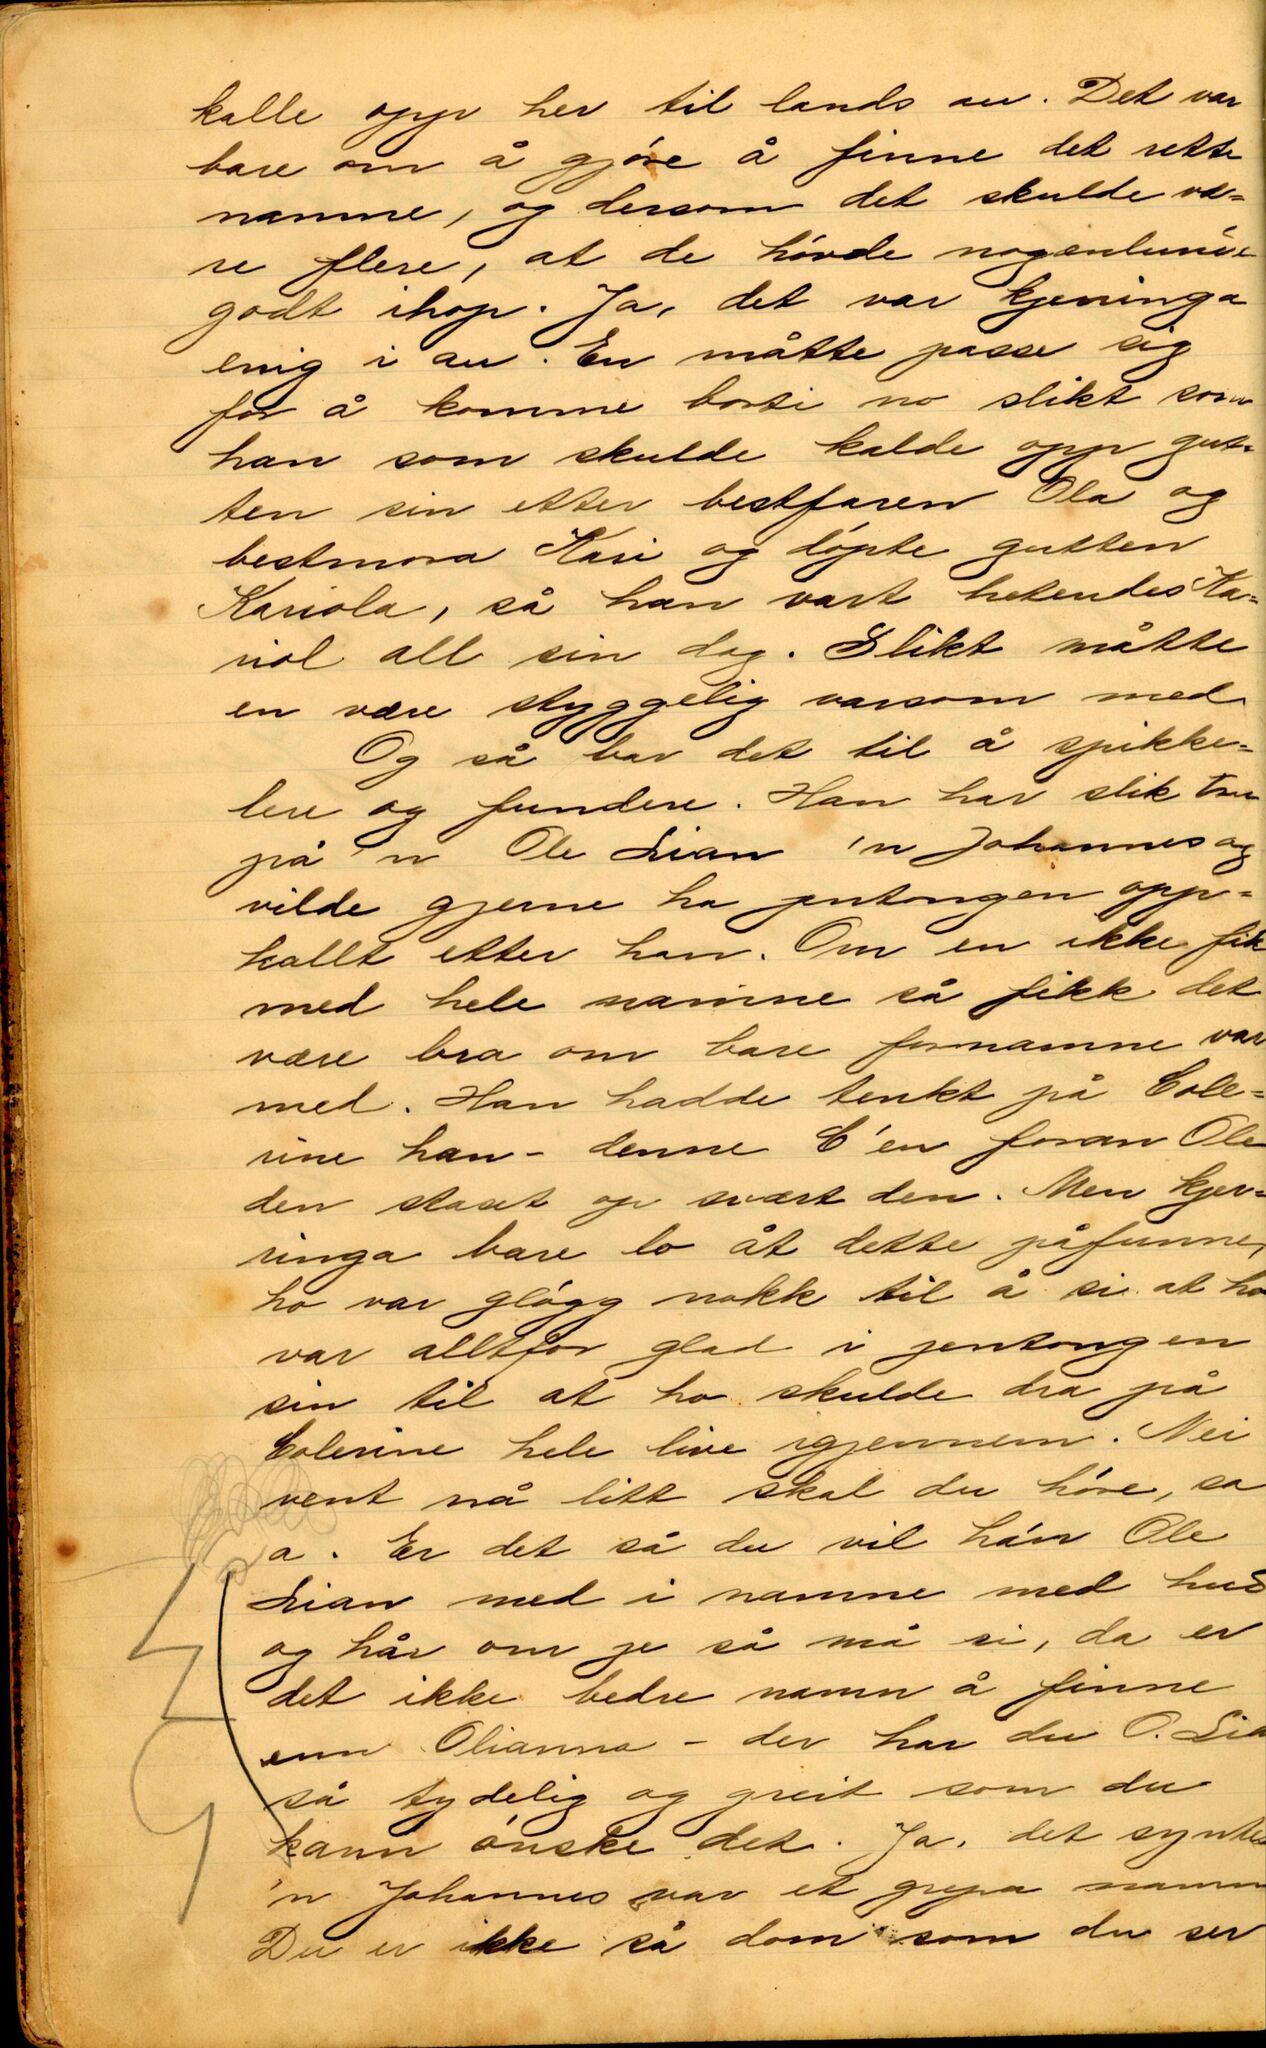 kalle opp her til lands au. Det var
bare om å gjøre å finne det rette
namne, og dersom det skulde væ=
re flere, at de høvde nogenlunde
godt ihop. Ja, det var kjeringa
enig i au. En måtte passe sig
for å komme borti no slikt som
han som skulde kalde opp gut=
ten sin etter bestfaren Ola og
bestmora Kari og døpte gutten
Kariola, så han vart hetendes Ka=
riol all sin dag. Slikt måtte
en være styggelig varsom med
Og så bar det til å spikke=
lere og fundere. Han har slik tru
på 'n Ole Lian 'n Johannes og
vilde gjerne ha jentongen opp=
kallt etter han. Om en ikke fik
med hele namne så fikk det
være bra om bare fornamne var
med. Han hadde tenkt på Cole=
rine han - denne C'en foran Ole
den staset op svært den. Men kjer=
ringa bare lo åt dette påfunne,
ho var gløgg nokk til å si at ho
var alltfor glad i jentongen
sin til at ho skulde dra på
Colerine hele live igjennem. Nei
vent nå litt skal du høre, sa
a. Er det så du vil há'n Ole
Lian med i namne med hud
og hår om je så må si, da er
det ikke bedre namn å finne
enn Olianna - der har du O. Lia
så tydelig og greit som du
kann ønske det. Ja, det syntes
'n Johannes var et grepa namn
Du er ikke så dom som du ser